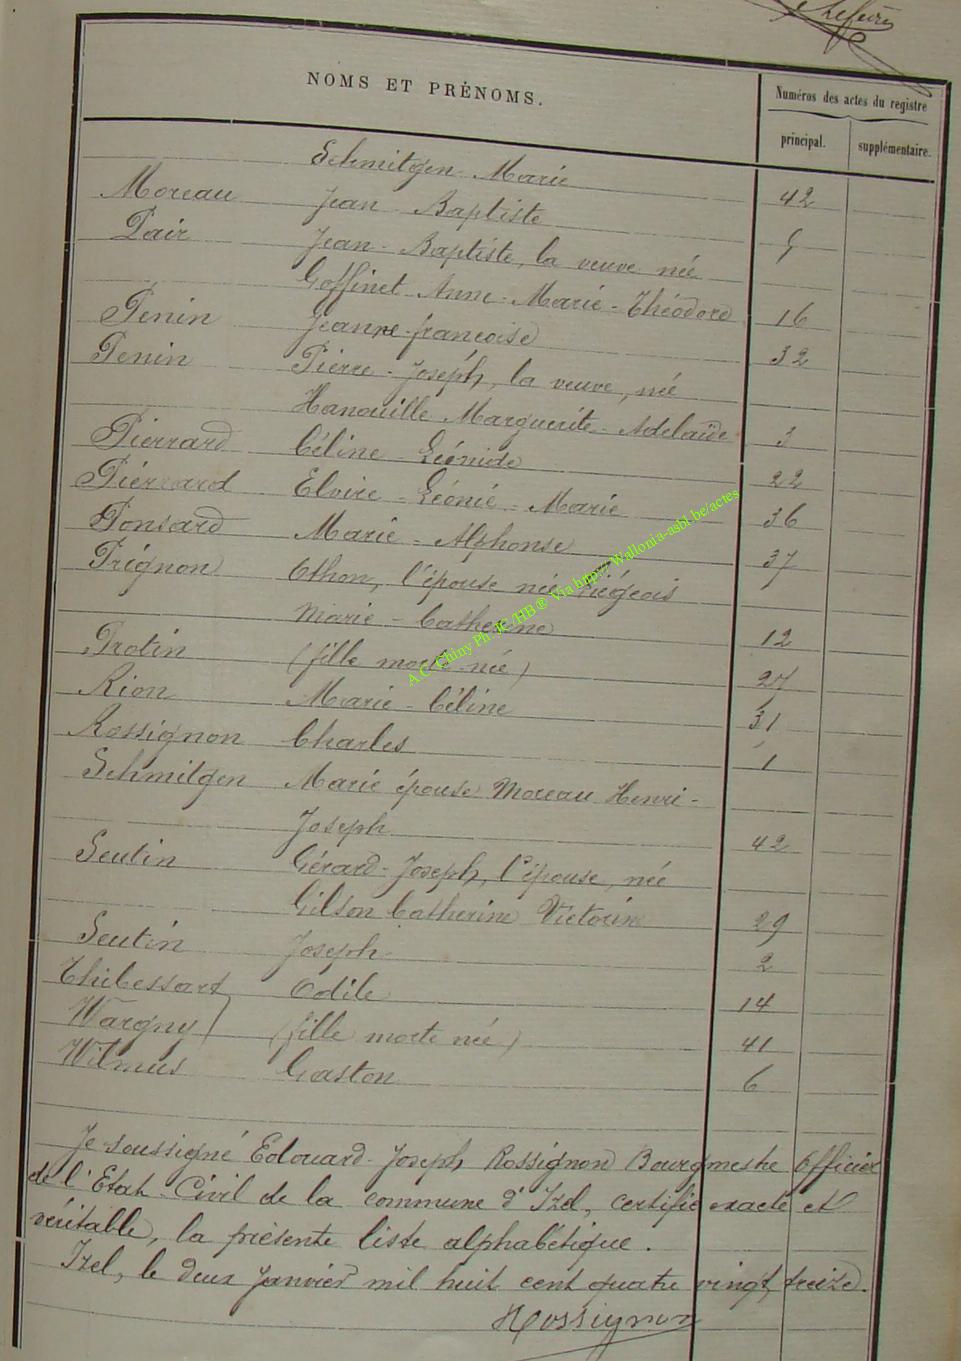 Lefèvre
NOMS ET PRÉNOMS.
Numéros des actes du registre
principal. supplémentaire.
Schmitgen Marie 42
Moreau Jean-Baptiste
Pair Jean-Baptiste, la veuve née
Goffinet Anne-Marie-Théodore 16
Penin Jeanne-françoise 32
Penin Pierre-Joseph, la veuve, née
Hanouille Marguerite-Adelaïde 3
Pierrard Céline-Léonide 22
Piérrard Elvire-Léonie-Marie 36
Ponsard Marie-Alphonse 37
Prignon Othon, l'épouse née Liégeois
Marie-Catherine 12
Protin (fille morte-née) 27
Rion Marie-Céline 31
Rossignon Charles 1
Schmitgen Marie épouse Moreau Henri-
Joseph 42
Seutin Gérard-Joseph, l'épouse, née
Gilson Catherine Victorine 29
Seutin Joseph 2
Thibessart Odile 14
Wargny (fille morte née) 41
Wilmus Gaston 6
Je soussigné Edouard-Joseph Rossignon Bourgmestre officier
de l'Etat-Civil de la commune d'Izel, certifie exacte et
véritable, la présente liste alphabétique.
Izel, le deux Janvier mil huit cent quatre vingt treize.
Rossignon
A.C. Chiny Ph. JC/HB ® Via http://Wallonia-asbl.be/actes